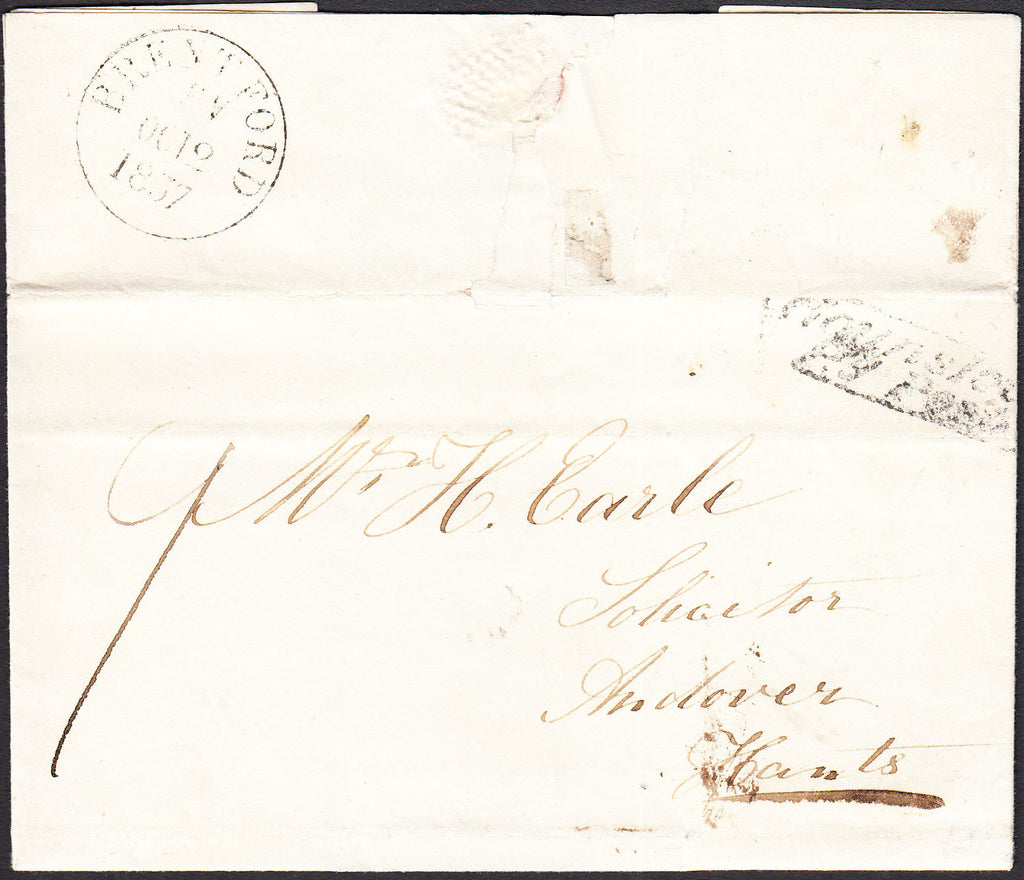 BRENTFORD
EV
OC12
1837
Py Post
Mr. H. Earle
Solicitor
Andover
Hants